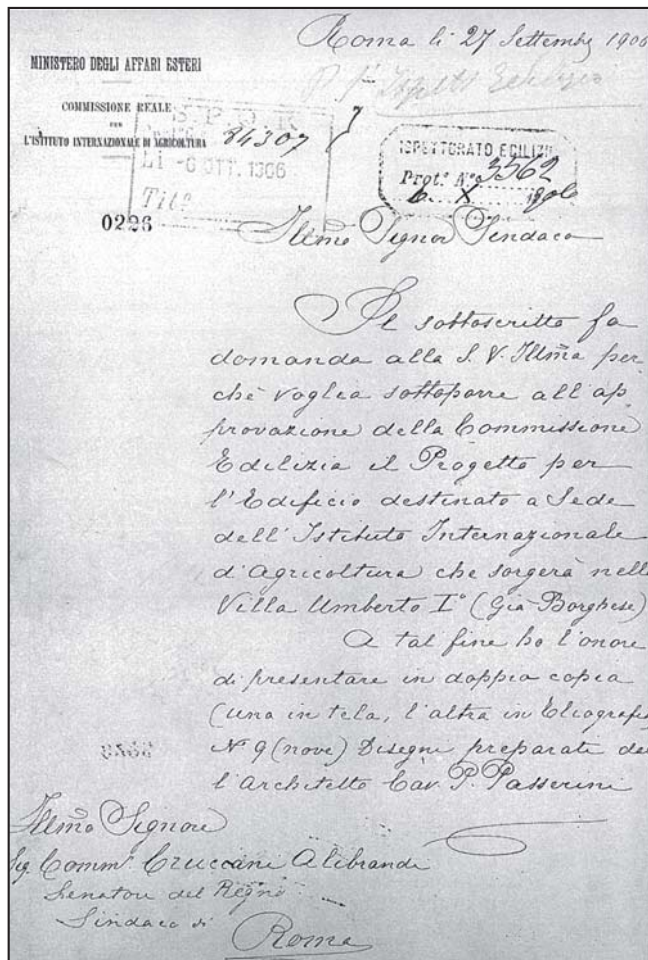 Roma li 27 Settembre 1906
MINISTERO DEGLI AFFARI ESTERI
COMMISSIONE REALE
PER
L'ISTITUTO INTERNAZIONALE DI AGRICOLTURA
S.P.Q.R.
84307
Li -6 OTT. 1906
Tit.
0226
ISPETTORATO EDILIZIO
Prot.º Nº 3362
6. X 1906
Illmo Signor Sindaco
Il sottoscritto fa
domanda alla S. V. Illma per
chè voglia sottoporre all'ap
provazione della Commissione
Edilizia il Progetto per
l'Edificio destinato a Sede
dell'Istituto Internazionale
d'Agricoltura che sorgerà nell
Villa Umberto Iº (Già Borghese)
A tal fine ho l'onore
di presentare in doppia copia
(una in tela, l'altra in Eliografia
Nº 9 (nove) Disegni preparati da
l'Architetto Cav. P. Passerini
Illmo Signore
Sig. Comm. Cruciani Alibrandi
Senatore del Regno
Sindaco di
Roma